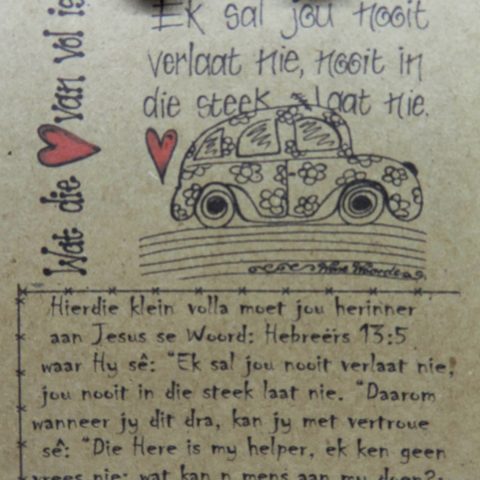 Wat die van vol is
Ek sal jou nooit
verlaat nie, nooit in
die steek laat nie.
Hierdie klein volla moet jou herinner
aan Jesus se Woord: Hebreërs 13:5
waar Hy sê: "Ek sal jou nooit verlaat nie,
jou nooit in die steek laat nie. "Daarom
wanneer jy dit dra, kan jy met vertroue
sê: "Die Here is my helper, ek ken geen
vrees nie: wat kan n mens aan my doen?"